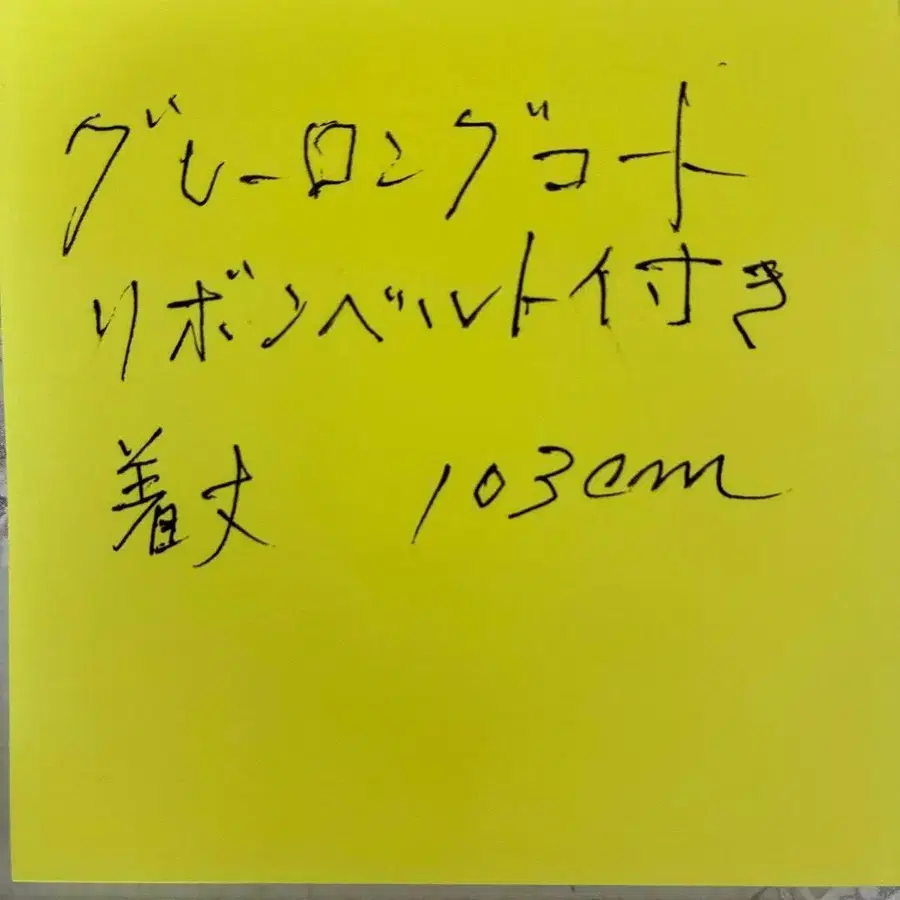 グレーロングコート
リボンベルト付き
着丈 103cm